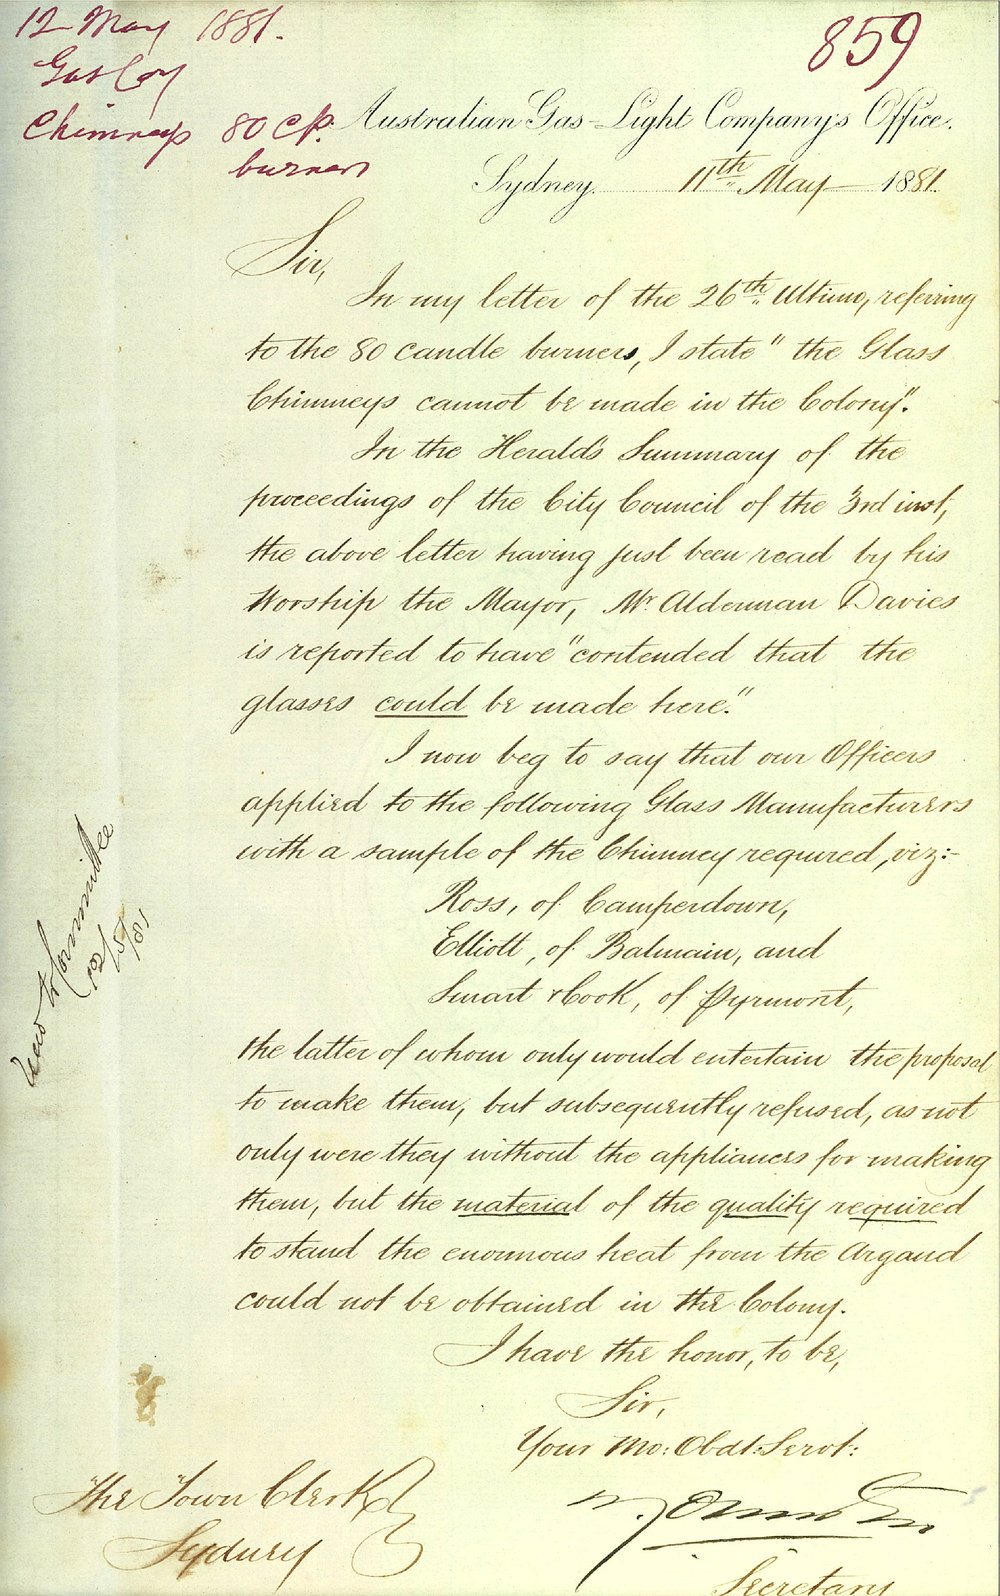 12 May 1881.
859
Gas Coy
Chimneys 80 CP.
burners
Australian Gas-Light Company's Office.
Sydney. 11th May 1881.
Sir,
In my letter of the 26th Ultimo, referring
to the 80 candle burners, I state "the Glass
Chimneys cannot be made in the Colony".
In the Herald's Summary of the
proceedings of the City Council of the 3rd inst,
the above letter having just been read by his
Worship the Mayor, Mr. Alderman Davies
is reported to have "contended that the
glasses could be made here."
I now beg to say that our Officers
applied to the following Glass Manufacturers
with a sample of the Chimney required, viz:-
Ross, of Camperdown,
Elliott, of Balmain, and
Smart & Cook, of Pyrmont,
the latter of whom only would entertain the proposal
to make them, but subsequently refused, as not
only were they without the appliances for making
them, but the material of the quality required
to stand the enormous heat from the Argand
could not be obtained in the Colony.
I have the honor, to be,
Sir,
Your Mo: Obdt: Servt:
The Town Clerk
Sydney
Secretary
Committee
12/5/81